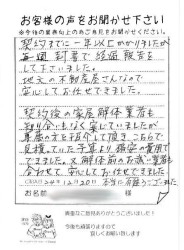 お客様の声をお聞かせ下さい
※今後の業務向上の為ご意見をお聞かせください。
契約までに一年以上かかりましたが
毎週 封書で経過報告を
して下さいました。
地元の不動産屋さんなので
安心してお任せできました。
契約後の家屋解体業者も
知り合いもなく
業者の方を紹介して頂き、こちらで
見積っていた予算より格安の費用で
できました。又解体前のお祓い業者も
合わせて、安心してお任せできました。
本当に有難うございました
お名前
様
貴重なご意見ありがとうございました！
今後も頑張りますので
宜しくお願い致します